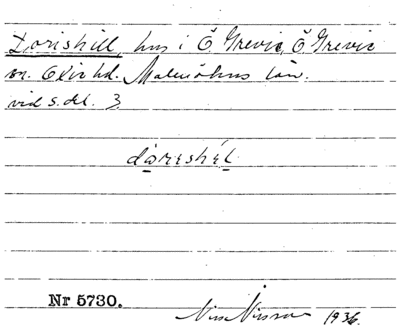 Dorishill, hus i Ö Grevie, Ö Grevie
sn. Oxie hd. Malmöhus län.
vid s. del. 3
dòrɩshɩ́l
Nr 5730.
Nils Nilsson 1936.